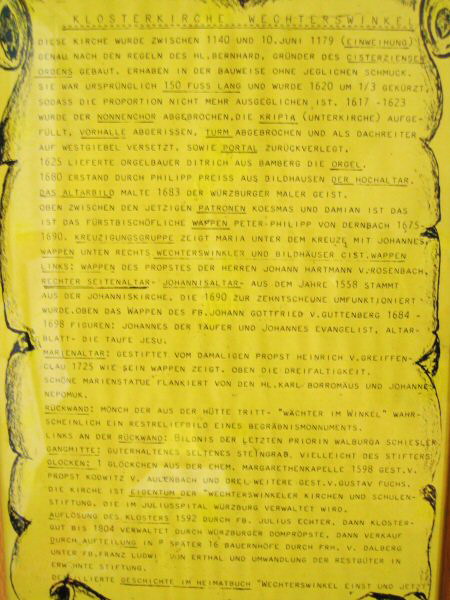 KLOSTERKIRCHE WECHTERSWINKEL
DIESE KIRCHE WURDE ZWISCHEN 1140 UND 10.JUNI 1179 (EINWEIHUNG)
GENAU NACH DEN REGELN DES HL.BERNHARD, GRÜNDER DES CISTERZIENSER
ORDENS GEBAUT. ERHABEN IN DER BAUWEISE OHNE JEGLICHEN SCHMUCK.
SIE WAR URSPRÜNGLICH 150 FUSS LANG UND WURDE 1620 UM 1/3 GEKÜRZT,
SODASS DIE PROPORTION NICHT MEHR AUSGEGLICHEN IST. 1617 -1623
WURDE DER NONNENCHOR ABGEBROCHEN, DIE KRIPTA (UNTERKIRCHE) AUFGE-
FÜLLT, VORHALLE ABGERISSEN, TURM ABGEBROCHEN UND ALS DACHREITER
AUF WESTGIEBEL VERSETZT, SOWIE PORTAL ZURÜCKVERLEGT.
1625 LIEFERTE ORGELBAUER DITRICH AUS BAMBERG DIE ORGEL.
1680 ERSTAND DURCH PHILIPP PREISS AUS BILDHAUSEN DER HOCHALTAR.
DAS ALTARBILD MALTE 1683 DER WÜRZBURGER MALER GEIST.
OBEN ZWISCHEN DEN JETZIGEN PATRONEN KOESMAS UND DAMIAN IST DAS
IST DAS FÜRSTBISCHÖFLICHE WAPPEN PETER-PHILIPP VON DERNBACH 1675-
1690. KREUZIGUNGSGRUPPE ZEIGT MARIA UNTER DEM KREUZE MIT JOHANNES,
WAPPEN UNTEN RECHTS WECHTERSWINKLER UND BILDHÄUSER CIST.WAPPEN
LINKS: WAPPEN DES PROPSTES DER HERREN JOHANN HARTMANN V.ROSENBACH,
RECHTER SEITENALTAR- JOHANNISALTAR- AUS DEM JAHRE 1558 STAMMT
AUS DER JOHANNISKIRCHE, DIE 1690 ZUR ZEHNTSCHEUNE UMFUNKTIONIERT
WURDE.OBEN DAS WAPPEN DES FB.JOHANN GOTTFRIED V.GUTTENBERG 1684 -
1698 FIGUREN: JOHANNES DER TÄUFER UND JOHANNES EVANGELIST, ALTAR-
BLATT- DIE TAUFE JESU.
MARIENALTAR: GESTIFTET VOM DAMALIGEN PROPST HEINRICH V.GREIFFEN-
CLAU 1725 WIE SEIN WAPPEN ZEIGT. OBEN DIE DREIFALTIGKEIT.
SCHÖNE MARIENSTATUE FLANKIERT VON DEN HL.KARL BORROMÄUS UND JOHANNES
NEPOMUK.
RÜCKWAND: MÖNCH DER AUS DER HÜTTE TRITT- "WÄCHTER IM WINKEL" WAHR-
SCHEINLICH EIN RESTRELIEFBILD EINES BEGRÄBNISMONNUMENTS.
LINKS AN DER RÜCKWAND: BILDNIS DER LETZTEN PRIORIN WALBURGA SCHIESLER
GANGMITTE: GUTERHALTENES SELTENES STEINGRAB, VIELLEICHT DES STIFTERS
GLOCKEN: 1 GLÖCKCHEN AUS DER CHEM. MARGARETHENKAPELLE 1598 GEST.V.
PROPST KODWITZ V. AULENBACH UND DREI WEITERE GEST.V.GUSTAV FUCHS.
DIE KIRCHE IST EIGENTUM DER "WECHTERSWINKELER KIRCHEN UND SCHULEN-
STIFTUNG, DIE IM JULIUSSPITAL WÜRZBURG VERWALTET WIRD.
AUFLÖSUNG DES KLOSTERS 1592 DURCH FB. JULIUS ECHTER, DANN KLOSTER-
GUT BIS 1804 VERWALTET DURCH WÜRZBURGER DOMPRÖPSTE, DANN VERKAUF
DURCH AUFTEILUNG IN SPÄTER 16 BAUERNHÖFE DURCH FRH. V. DALBERG
UNTER FB.FRANZ LUDWI VON ERTHAL UND UMWANDLUNG DER RESTGÜTER IN
ERWÄHNTE STIFTUNG.
DETAILLIERTE GESCHICHTE IM HEIMATBUCH "WECHTERSWINKEL EINST UND JETZT